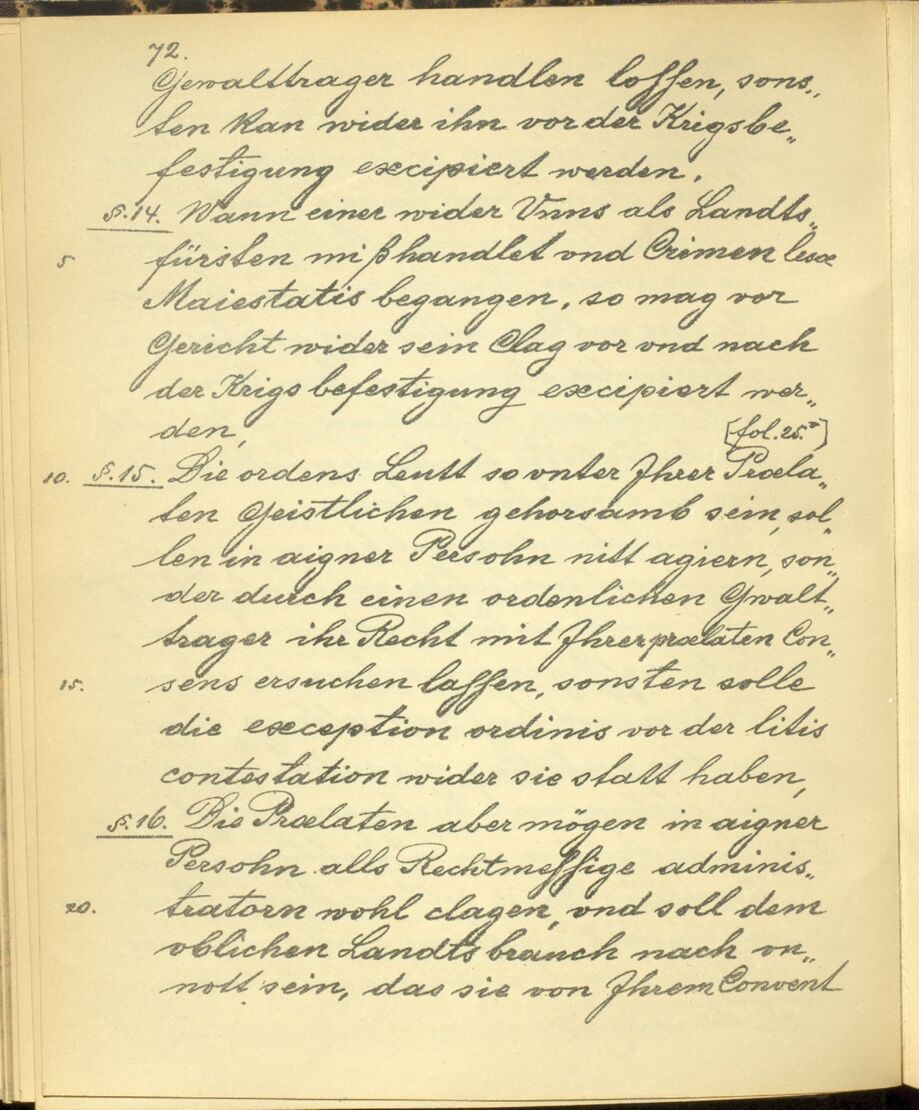 72.
Gewalttrager handlen loſſen, sons„
ten kan wider ihn vor der Krigsbe„
festigung excipiert werden.
§.14. Wann einer wider Vnns als Landts„
5 fürsten mißhandlet vnd Crimen lesæ
Maiestatis begangen, so mag vor
Gericht wider sein Clag vor vnd nach
der Krigsbefestigung excipiert wer„
den,
[fol.25.v]
10. §.15. Die ordens Leutt so vnter Jhrer Præla„
ten Geistlichen gehorsamb sein, sol„
len in aigner Persohn nitt agiern, son„
der durch einen ordenlichen Gwalt„
trager ihr Recht mit Jhrer prælaten Con„
15. sens ersuchen laſſen, sonsten solle
die exception ordinis vor der litis
contestation wider sie statt haben,
§.16. Die Prælaten aber mögen in aigner
Persohn alls Rechtmeſſige adminis„
20. tratorn wohl clagen, vnd soll dem
oblichen Landtsbrauch nach vn„
nott sein, das sie von Jhrem Convent